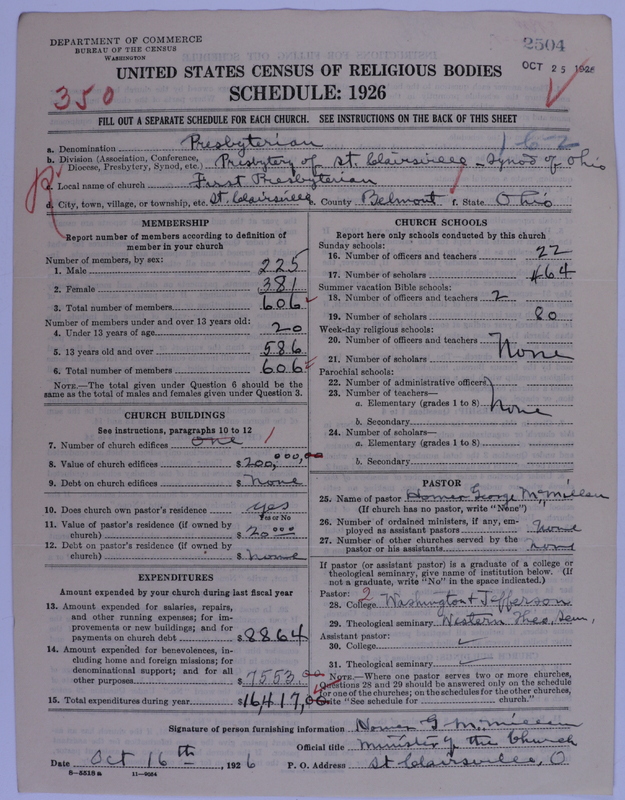 DEPARTMENT OF COMMERCE
BUREAU OF THE CENSUS
WASHINGTON
2504
OCT 25 1926
UNITED STATES CENSUS OF RELIGIOUS BODIES
SCHEDULE: 1926
350
FILL OUT A SEPARATE SCHEDULE FOR EACH CHURCH. SEE INSTRUCTIONS ON THE BACK OF THIS SHEET
a. Denomination Presbyterian 162
b. Division (Association, Conference, Diocese, Presbytery, Synod, etc.) Presbytery of St. Clairsville - Synod of Ohio
c. Local name of church First Presbyterian
d. City, town, village, or township, etc. St. Clairsville e. County Belmont f. State Ohio
MEMBERSHIP
Report number of members according to definition of
member in your church
Number of members, by sex:
1. Male 225
2. Female 381
3. Total number of members 606
Number of members under and over 13 years old:
4. Under 13 years of age 20
5. 13 years old and over 586
6. Total number of members 606
NOTE.—The total given under Question 6 should be the
same as the total of males and females given under Question 3.
CHURCH BUILDINGS
See instructions, paragraphs 10 to 12
7. Number of church edifices One 1
8. Value of church edifices $200,000.00
9. Debt on church edifices $ None
10. Does church own pastor's residence yes
Yes or No
11. Value of pastor's residence (if owned by
church) $
12. Debt on pastor's residence (if owned by
church) $ None
EXPENDITURES
Amount expended by your church during last fiscal year
13. Amount expended for salaries, repairs,
and other running expenses; for im-
provements or new buildings; and for
payments on church debt $8864
14. Amount expended for benevolences, in-
cluding home and foreign missions; for
denominational support; and for all
other purposes $7553.00
15. Total expenditures during year $16,417.00
CHURCH SCHOOLS
Report here only schools conducted by this church
Sunday schools:
16. Number of officers and teachers 22
17. Number of scholars 464
Summer vacation Bible schools:
18. Number of officers and teachers 2
19. Number of scholars 80
Week-day religious schools:
20. Number of officers and teachers
21. Number of scholars None
Parochial schools:
22. Number of administrative officers
23. Number of teachers—
a. Elementary (grades 1 to 8) None
b. Secondary
24. Number of scholars—
a. Elementary (grades 1 to 8)
b. Secondary
PASTOR
25. Name of pastor Homer George McMillen
(If church has no pastor, write "None")
26. Number of ordained ministers, if any, em-
ployed as assistant pastors None
27. Number of other churches served by the
pastor or his assistants None
If pastor (or assistant pastor) is a graduate of a college or
theological seminary, give name of institution below. (If
not a graduate, write "No" in the space indicated.)
Pastor: 2
28. College Washington & Jefferson
29. Theological seminary Western Theo. Sem.
Assistant pastor:
30. College
31. Theological seminary
NOTE.—Where one pastor serves two or more churches,
Questions 28 and 29 should be answered only on the schedule
for one of the churches; on the schedules for the other churches,
write "See schedule for church."
Signature of person furnishing information Homer G. McMillen
Official title Minister of the Church
Date Oct 16th, 1926 P. O. Address St Clairsville, O.
8-5518a 11-9054